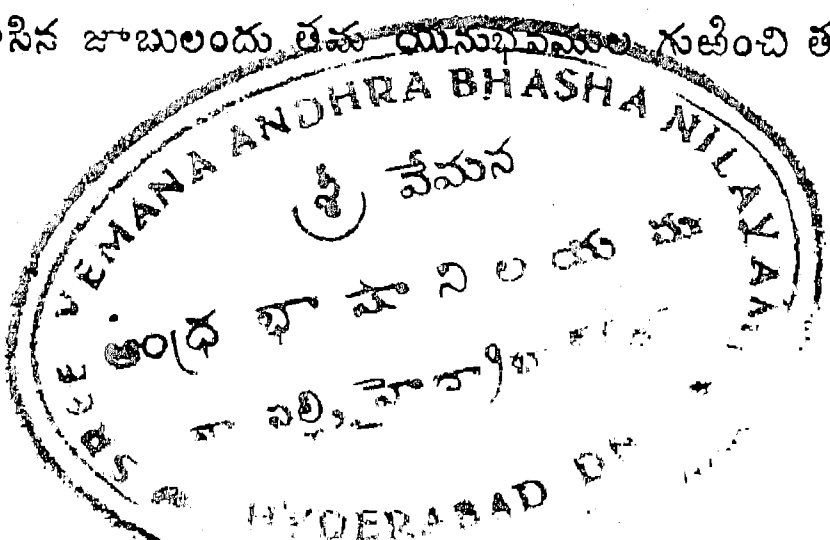 సిన జాబులందు తమ యనుభవముల గుఱించి త
SREE VEMANA ANDHRA BHASHA NILAYAM
శ్రీ వేమన
ఆంధ్ర భాషానిలయము
HYDERABAD